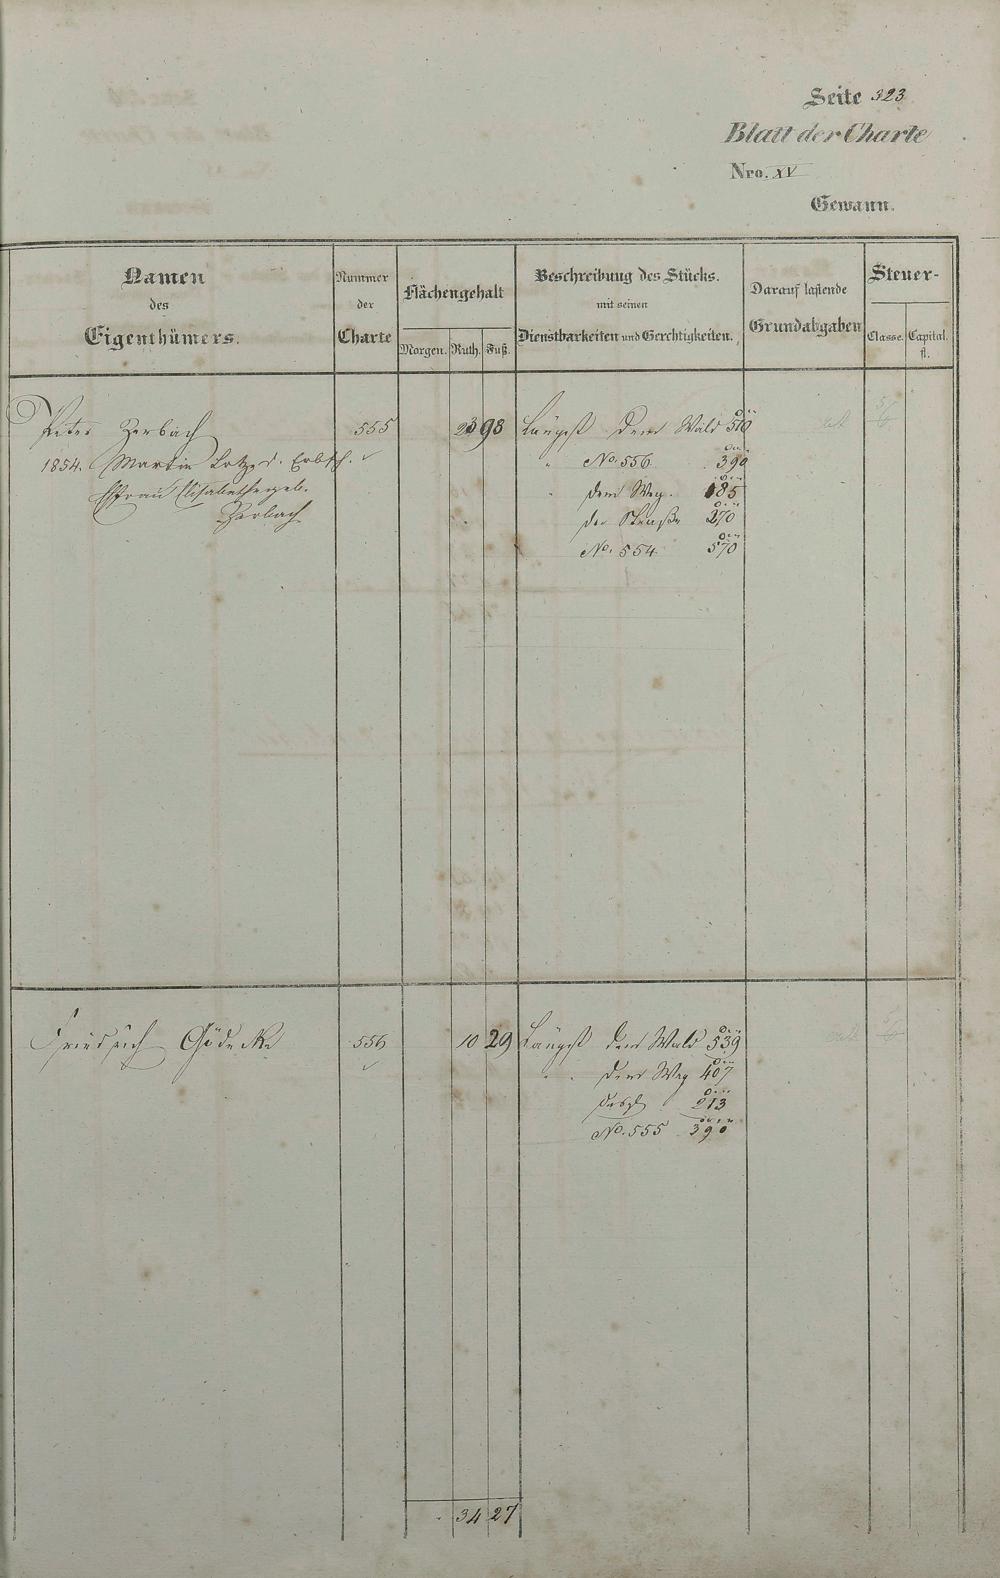 Seite 323
Blatt der Charte
Nro. XV
Gewann.
Namen
des
Eigenthümers.
Nummer
der
Charte
Flächengehalt
Morgen. Ruth. Fuß.
Beschreibung des Stücks.
mit seinen
Dienstbarkeiten und Gerechtigkeiten.
Darauf lastende
Grundabgaben
Steuer-
Classe. Capital.
fl.
Peter Zerbach 555 23 98 Längst dem Wald 510
1854. Martin Lotz d. Erbsch. No. 556 390
Ehefrau Elisabetha geb. dem Weg. 185
Zerbach der Straße 270
No. 554 570
Friedrich Gödecke 556 10 29 Längst dem Wald 539
dem Weg 407
desgl 213
No. 555 390
34 27